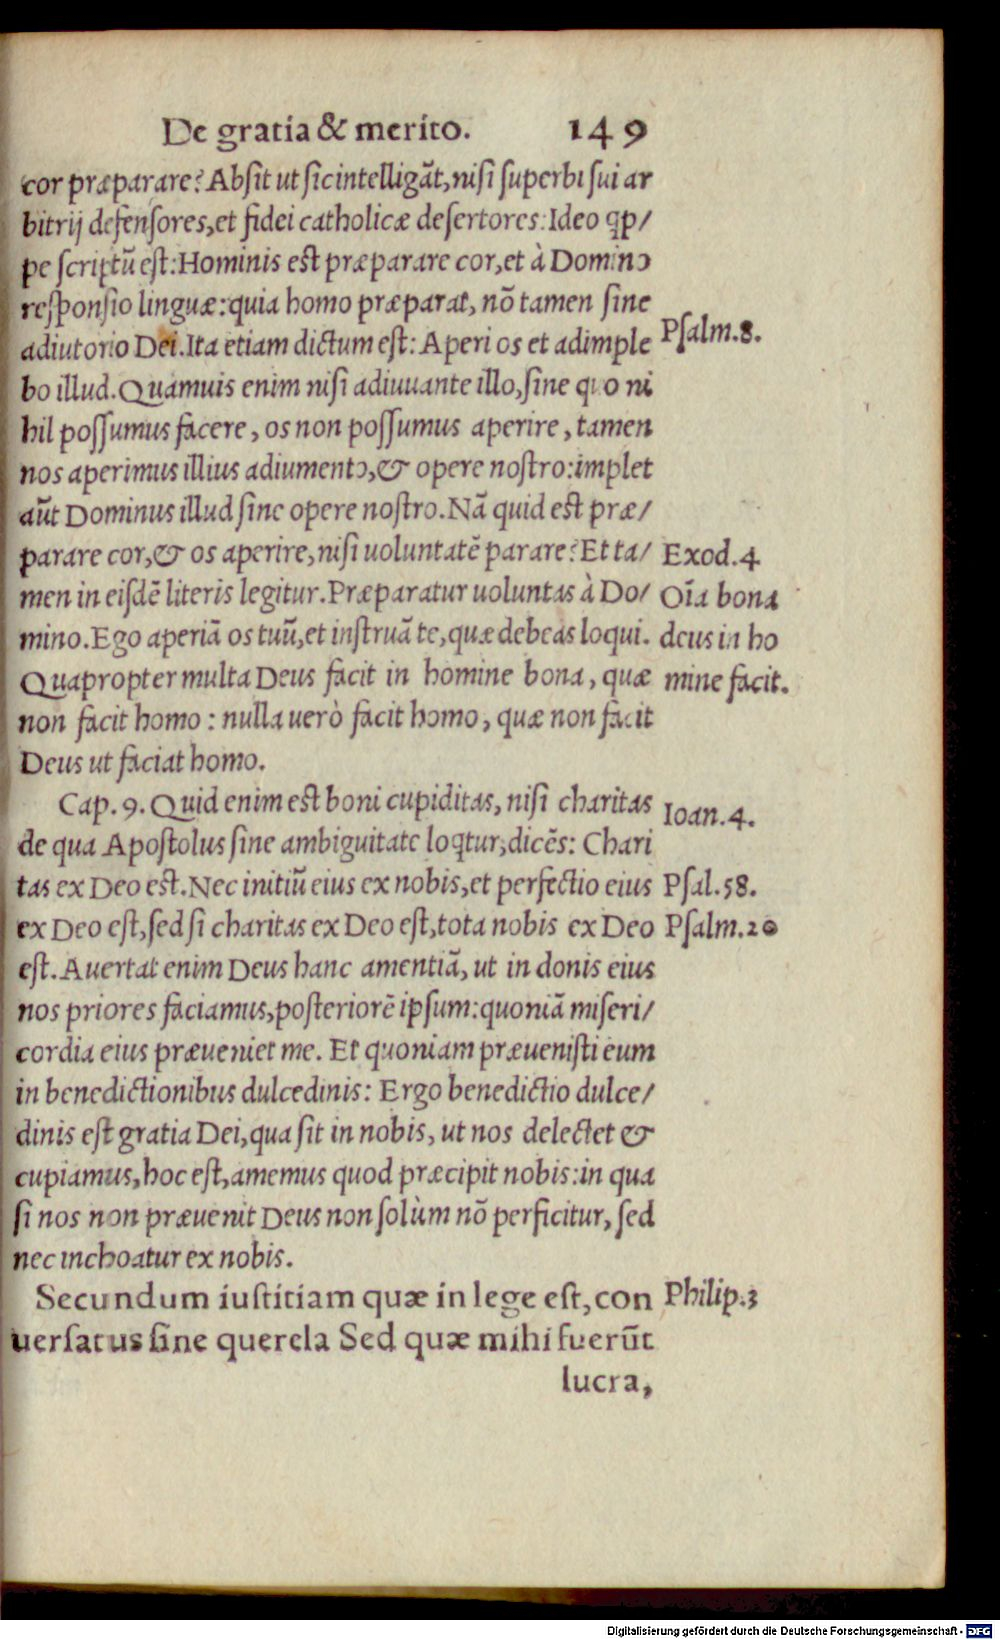 De gratia & merito. 149
cor præparare? Absit ut sic intelligāt, nisi superbi sui ar
bitrij defensores, et fidei catholicæ desertores. Ideo qp/
pe scriptū est: Hominis est præparare cor, et à Domino
responsio linguæ: quia homo præparat, nō tamen sine
adiutorio Dei. Ita etiam dictum est: Aperi os et adimple
Psalm.8.
bo illud. Quamuis enim nisi adiuuante illo, sine quo ni
hil possumus facere, os non possumus aperire, tamen
nos aperimus illius adiumento, & opere nostro: implet
aūt Dominus illud sine opere nostro. Nā quid est præ/
parare cor, & os aperire, nisi uoluntatē parare? Et ta/
Exod.4
men in eisdē literis legitur. Præparatur uoluntas à Do/
Oīa bona
mino. Ego aperiā os tuū, et instruā te, quæ debeas loqui.
deus in ho
Quapropter multa Deus facit in homine bona, quæ
mine facit.
non facit homo: nulla uerò facit homo, quæ non facit
Deus ut faciat homo.
Cap. 9. Quid enim est boni cupiditas, nisi charitas
Ioan.4.
de qua Apostolus sine ambiguitate loqtur, dicēs: Chari
tas ex Deo est. Nec initiū eius ex nobis, et perfectio eius
Psal.58.
ex Deo est, sed si charitas ex Deo est, tota nobis ex Deo
Psalm.20
est. Auertat enim Deus hanc amentiā, ut in donis eius
nos priores faciamus, posteriorē ipsum: quoniā miseri/
cordia eius præueniet me. Et quoniam præuenisti eum
in benedictionibus dulcedinis: Ergo benedictio dulce/
dinis est gratia Dei, qua sit in nobis, ut nos delectet &
cupiamus, hoc est, amemus quod præcipit nobis: in qua
si nos non præuenit Deus non solùm nō perficitur, sed
nec inchoatur ex nobis.
Secundum iustitiam quæ in lege est, con
Philip.3
uersatus sine querela Sed quæ mihi fuerūt
lucra,
Digitalisierung gefördert durch die Deutsche Forschungsgemeinschaft - DFG